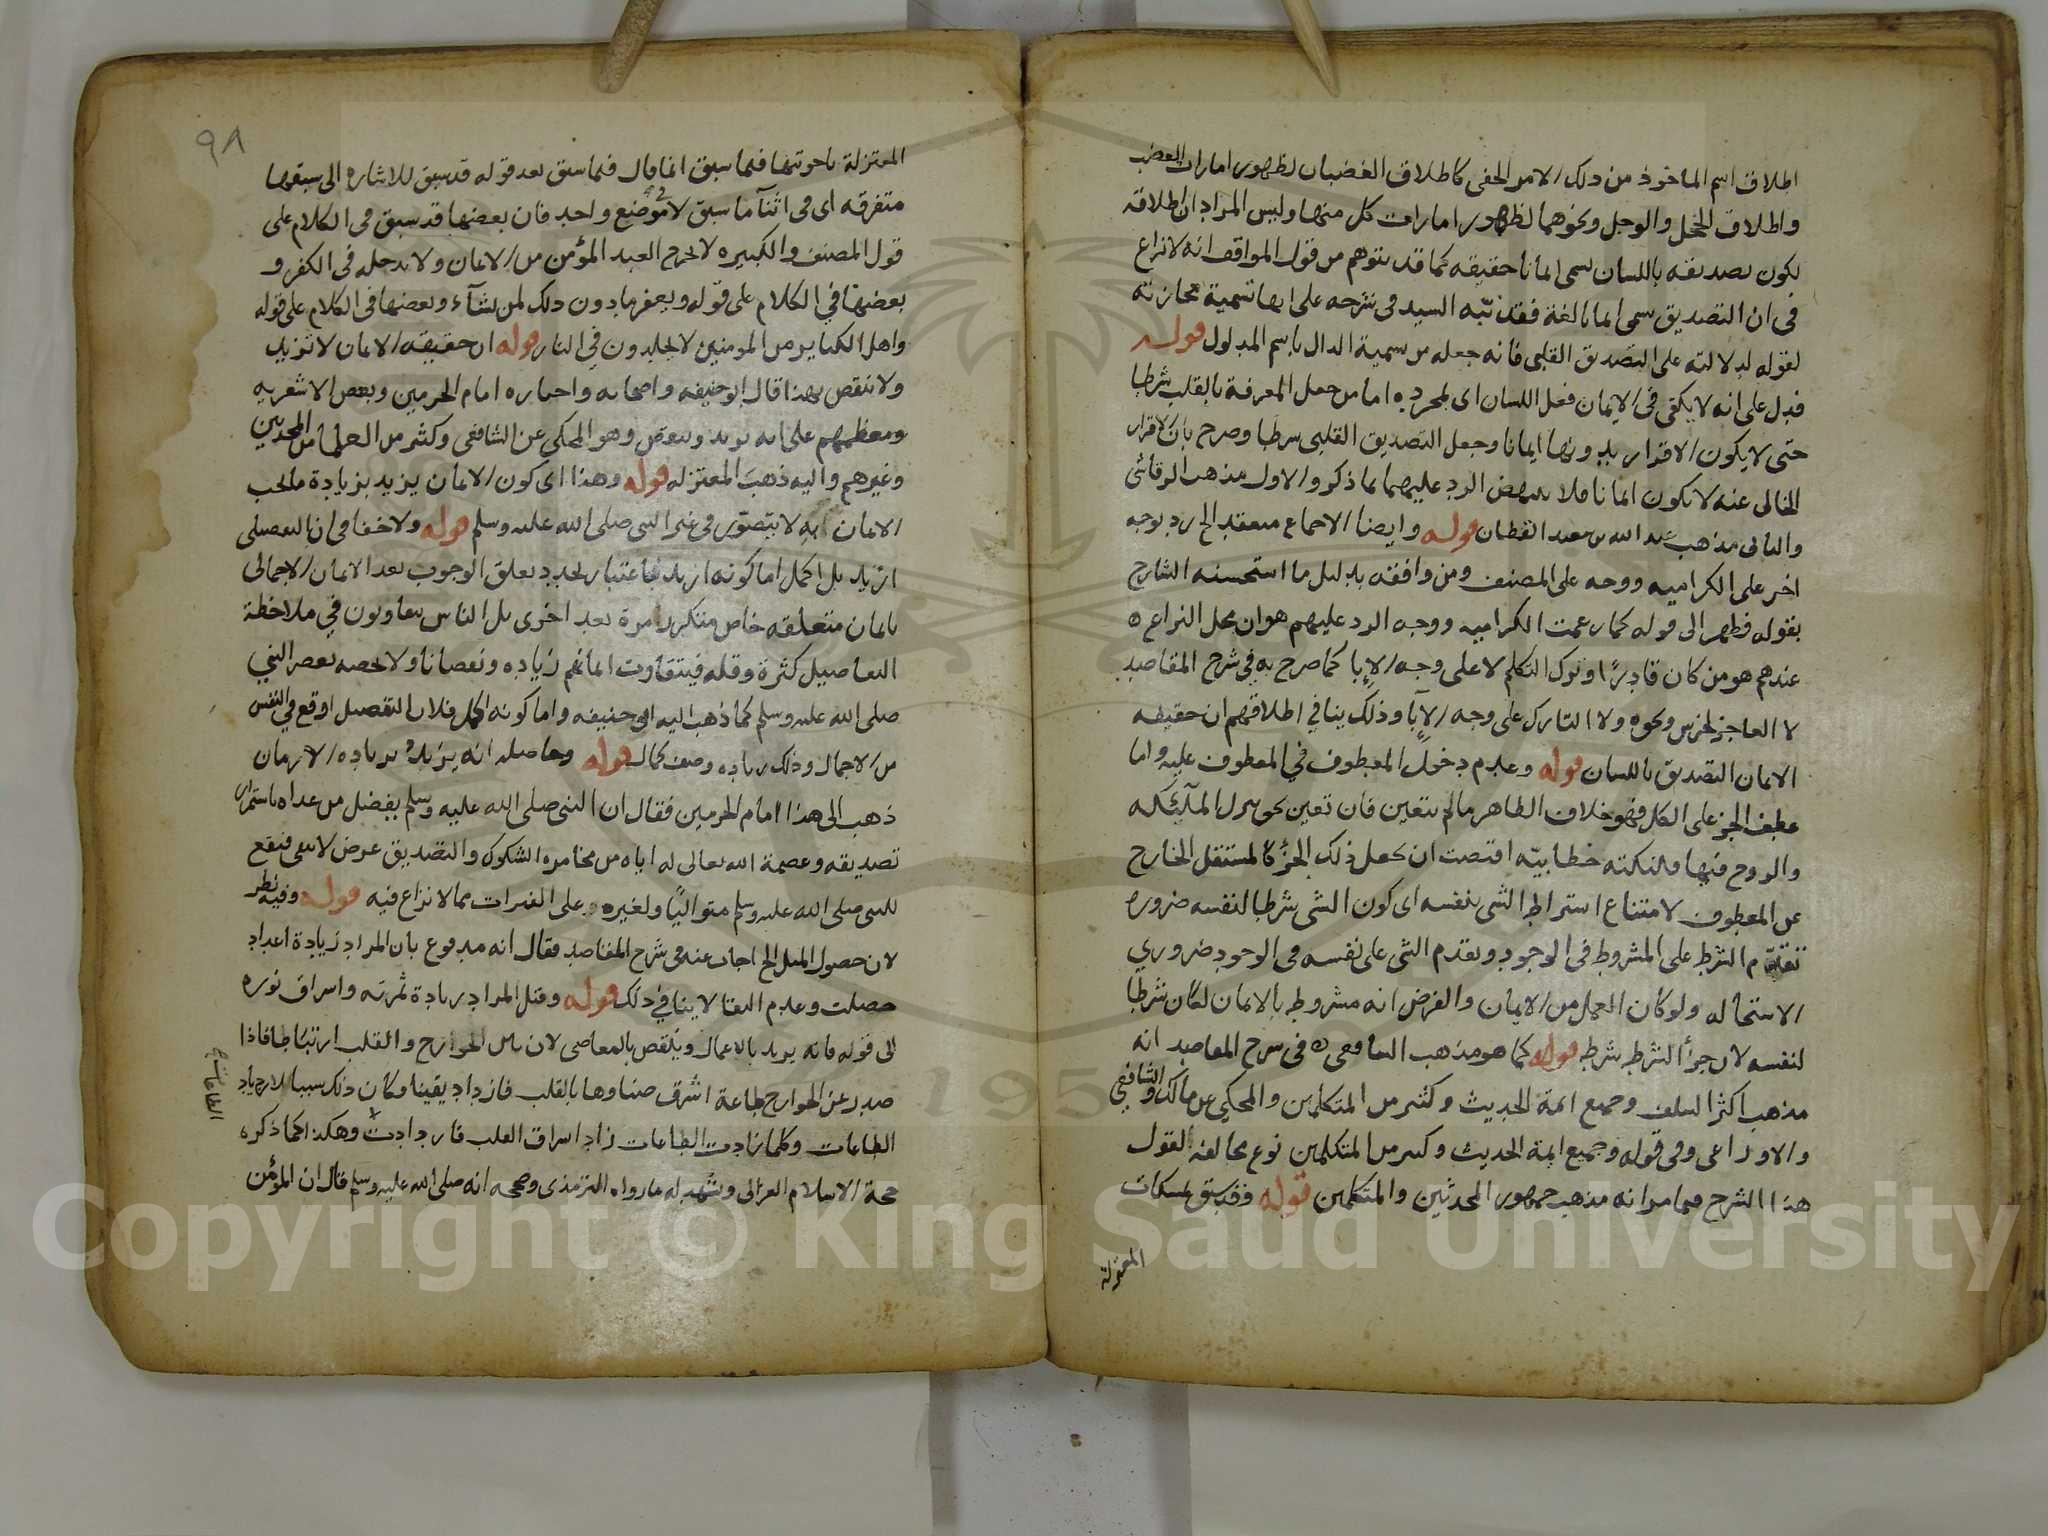 اطلاق اسم الماخوذ من ذلك الامر الخفى كاطلاق الغضبان لظهور امارات الغضب
واطلاق الخجل والوجل ونحوهما لظهور امارات كل منها وليس المراد ان اطلاقه
لكون تصديقه باللسان يسمى ايمانا حقيقه كما قد يتوهم من قول المواقف انه لا نزاع
فى ان التصديق يسمى ايمانا لغة فقد نبّه السيد فى شرحه على انها تسمية مجازية
لقوله لدلالته على التصديق القلبى فانه جعله من تسمية الدال باسم المدلول قوله
فدل على انه لا يكفى فى الايمان فعل اللسان اى بمجرده اما من جعل المعرفة بالقلب شرطا
حتى لا يكون الاقرار بدونها ايمانا وجعل التصديق القلبى شرطا وصرح بان الاقرار
الخالى عنه لا يكون ايمانا فلا ينهض الرد عليهما بما ذكر والاول مذهب الرقاشى
والثانى مذهب عبد الله بن سعيد القطان قوله وايضا الاجماع منعقد الخ رد بوجه
اخر على الكراميه ووجه على المصنف ومن وافقه بدليل ما استحسنه الشارح
بقوله فظهر الى قوله كما زعمت الكراميه ووجه الرد عليهم هو ان محل النزاع
عندهم هو من كان قادرًا وترك التكلم لا على وجه الإبا كما صرح به فى شرح المقاصد
لا العاجز لخرس ونحوه ولا التارك على وجه الإبا وذلك ينافى اطلاقهم ان حقيقه
الايمان التصديق باللسان قوله وعدم دخول المعطوف فى المعطوف عليه واما
عطف الجز على الكل فهو خلاف الظاهر ما لم يتعين فان تعين نحو تنزل الملآئكه
والروح فيها فلنكته خطابيّه اقتضت ان يجعل ذلك الجزء كالمستقل الخارج
عن المعطوف لامتناع اشتراط الشى بنفسه اى كون الشى شرطا لنفسه ضروره
تقدّم الشرط على المشروط فى الوجود وتقدم الشى على نفسه فى الوجود ضروري
الاستحاله ولو كان العمل من الايمان والفرض انه مشروط بالايمان لكان شرطا
لنفسه لان جزأ الشرط شرط قوله كما هو مذهب الشافعى فى شرح المقاصد انه
مذهب اكثر السلف وجميع ائمة الحديث وكثير من المتكلمين والمحكى عن مالك والشافعى
والاوزاعى وفى قوله وجميع ائمة الحديث وكثير من المتكلمين نوع مخالفة لقول
هذا الشرح فيما مر انه مذهب جمهور المحدثين والمتكلمين قوله وقد سبق تمسكات
المعتزلة
٩٨
المعتزلة باجوبتها فيما سبق انما قال فيما سبق بعد قوله قد سبق للاشاره الى سبقها
متفرقه اى فى اثنآ ما سبق لا فى موضع واحد فان بعضها قد سبق فى الكلام على
قول المصنف والكبيره لا تخرج العبد المؤمن من الايمان ولا تدخله فى الكفر و
بعضها فى الكلام على قوله ويغفر ما دون ذلك لمن يشآء وبعضها فى الكلام على قوله
واهل الكباير من المومنين لا يخلدون فى النار قوله ان حقيقه الايمان لا تزيد
ولا تنقص بهذا قال ابو حنيفه واصحابه واختاره امام الحرمين وبعض الاشعريه
ومعظمهم على انه يزيد وينقص وهو المحكى عن الشافعى وكثير من العلما من المحدثين
وغيرهم واليه ذهب المعتزله قوله وهذا اى كون الايمان يزيد بزيادة ما يجب
الايمان به لا يتصوّر فى غير النبى صلى الله عليه وسلم قوله ولا خفا فى ان التفصيلى
ازيد بل اكمل اما كونه ازيد فباعتبار تجدد تعلق الوجوب بعد الايمان الاجمالى
بايمان متعلقه خاص متكرر مرة بعد اخرى بل الناس يتفاوتون فى ملاحظة
التفاصيل كثرة وقله فيتفاوت ايمانهم زياده ونقصانا ولا يخصه بعصر النبى
صلى الله عليه وسلم كما ذهب اليه ابى حنيفه واما كونه اكمل فلان التفصيل اوقع فى النفس
من الاجمال وذلك زياده وصف كمال قوله وحاصله انه يزيد بزياده الازمان
ذهب الى هذا امام الحرمين فقال ان النبى صلى الله عليه وسلم يفضل من عداه باستمرار
تصديقه وعصمة الله تعالى له اياه من مخامره الشكوك والتصديق عرض لا يبقى فيقع
للنبى صلى الله عليه وسلم متواليًا ولغيره على الفترات مما لا نزاع فيه قوله وفيه نظر
لان حصول المثل الخ اجاب عنه فى شرح المقاصد فقال انه مدفوع بان المراد زيادة اعداد
حصلت وعدم البقا لا ينافى ذلك قوله وقيل المراد زيادة ثمرته واشراق نوره
الى قوله فانه يزيد بالاعمال وينقص بالمعاصى لان بين الجوارح والقلب ارتباطا فاذا
صدر عن الجوارح طاعة اشرق ضياوها بالقلب فازداد يقينا وكان ذلك سببا لازدياد
الطاعات وكلما زادت الطاعات زاد اشراق القلب فازدادت وهكذا كما ذكره
حجة الاسلام الغزالى ويشهد له ما رواه الترمذى وصححه انه صلى الله عليه وسلم قال ان المؤمن
الطاعات صح
Copyright © King Saud University
1957